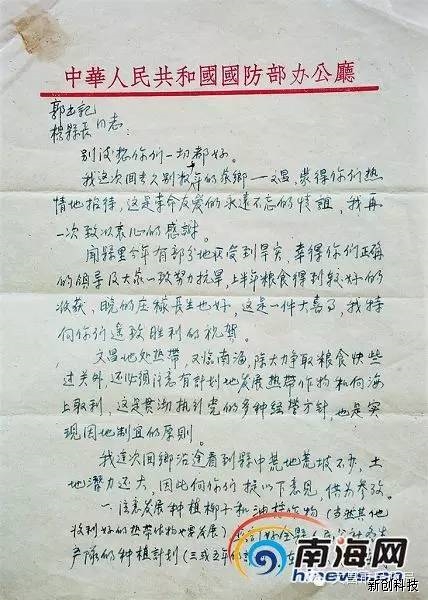 中華人民共和國國防部办公廳
郭书記
楊縣長 同志:
别後想你们一切都好。
我这次回去久别数年的家鄉——文昌,承得你们热
情地招待,这是革命友爱的永远不忘的情誼,我再
一次致以衷心的感谢。
聞縣里今年有部分地区受到旱灾,幸得你们正确
的領导及大家一致努力抗旱,上半年粮食得到較好的
收获,晚的庄稼長生也好,这是一件大喜事,我特
向你们遙致胜利的祝賀。
文昌地处热带,又临南海,除大力争取粮食快些
过关外,还必須注意有計划地发展热带作物和向海
上取利,这是貫彻执行党的多种经营方針,也是实
現因地制宜的原则。
我这次回鄉沿途看到縣中荒地荒坡不少,土
地潛力还大,因此向你们提以下意見,供为参攷。
一.注意发展种植椰子和油棕作物(当然其他
收利好的热带作物也要发展)
产隊的种植計划(三或五年的
南海网
新创科技